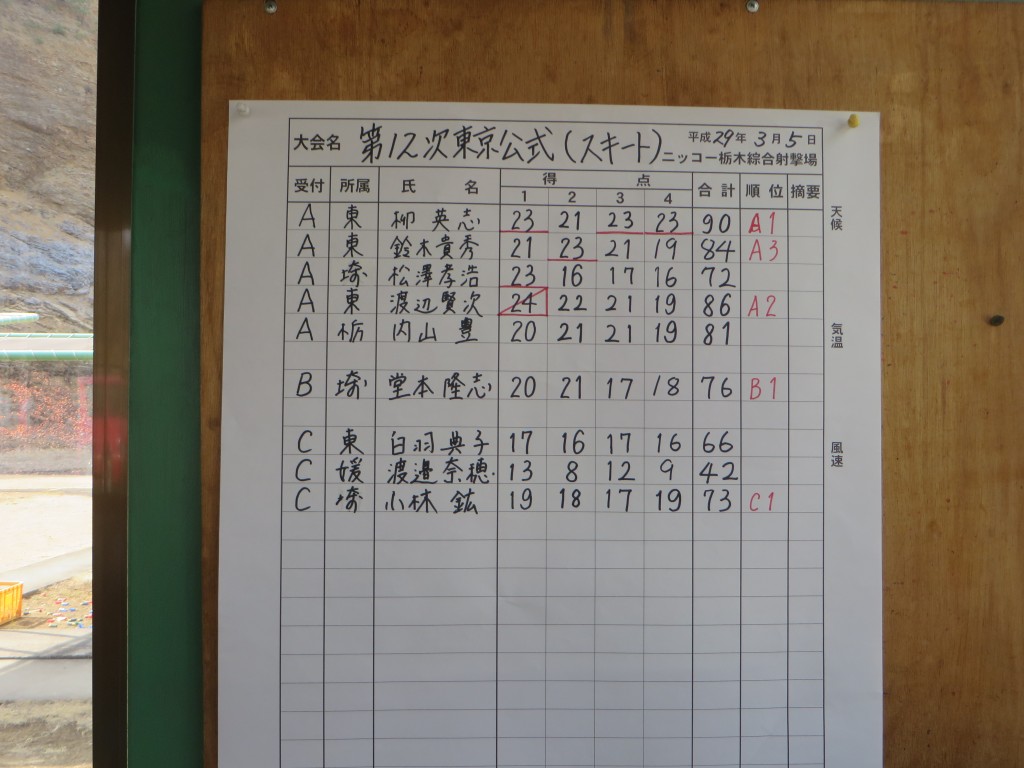 大会名 第12次東京公式(スキート) 平成29年3月5日
ニッコー栃木綜合射撃場
受付 所属 氏名 得点 合計 順位 摘要
1 2 3 4
A 東 柳 英志 23 21 23 23 90 A1
A 東 鈴木貴秀 21 23 21 19 84 A3
A 埼 松澤孝浩 23 16 17 16 72
A 東 渡辺賢次 24 22 21 19 86 A2
A 栃 内山 豊 20 21 21 19 81
B 埼 堂本隆志 20 21 17 18 76 B1
C 東 白羽典子 17 16 17 16 66
C 媛 渡邉奈穂 13 8 12 9 42
C 埼 小林 鉱 19 18 17 19 73 C1
天候
気温
風速